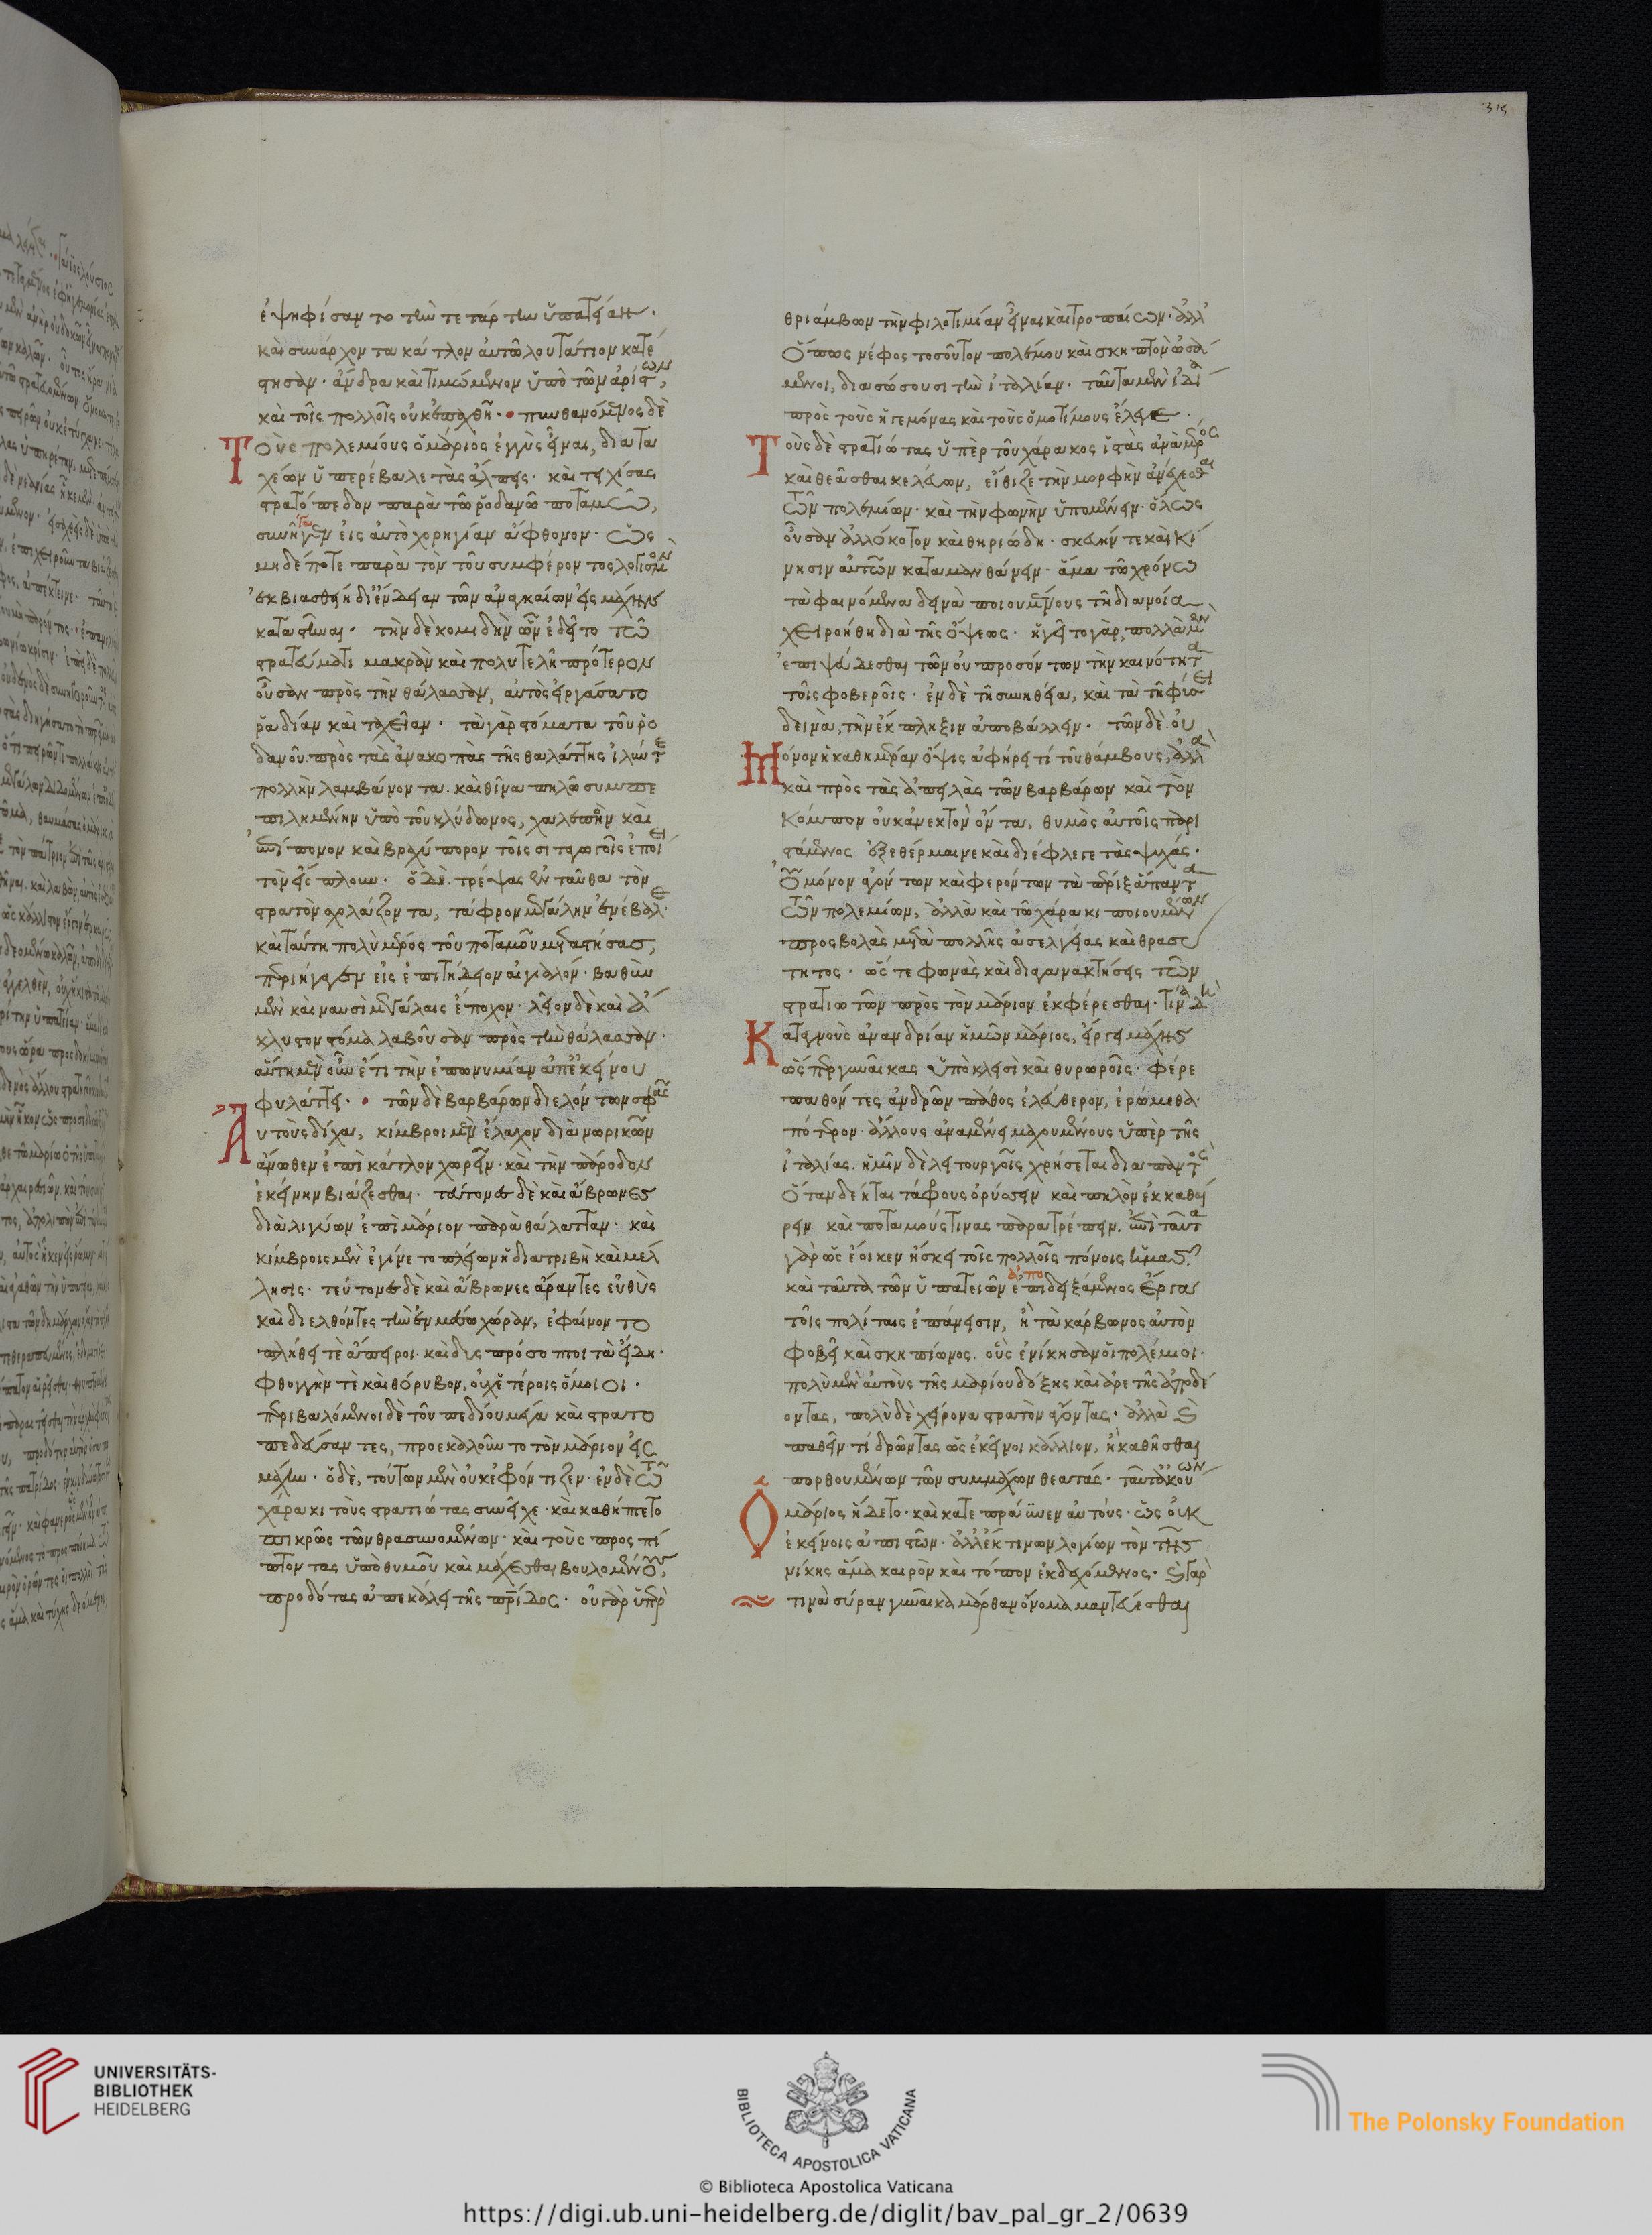 315
ἐψηφίσαντο τὴν τετάρτην ὑπατείαν.
καὶ συνάρχοντα κάτλον αὐτῶ λουτάτιον κατέ
στησαν. ἄνδρα καὶ τιμώμενον ὑπὸ τῶν ἀρίστων,
καὶ τοῖς πολλοῖς οὐκ ἐπαχθῆ. πυνθανόμενος δὲ
Τοὺς πολεμίους ὁ μάριος ἐγγὺς εἶναι, διατα
χέων ὑπερέβαλε τὰς ἄλπεις. καὶ τειχίσας
στρατόπεδον παρὰ τῶ ῥοδανῶ ποταμῶ,
συνῆγεν εἰς αὐτὸ χορηγίαν ἄφθονον. ὡς
μηδέποτε παρὰ τὸν τοῦ συμφέροντος λογισμὸν
ἐκβιασθείη δι' ἔνδειαν τῶν ἀναγκαίων εἰς μάχην
καταστῆναι. τὴν δὲ κομιδὴν ὧν ἐδεῖτο τῶ
στρατεύματι μακρὰν καὶ πολυτελῆ πρότερον
οὖσαν πρὸς τὴν θάλασσαν, αὐτὸς εἰργάσατο
ῥαδίαν καὶ ταχεῖαν. τὰ γὰρ στόματα τοῦ ῥο
δανοῦ πρὸς τὰς ἀνακοπὰς τῆς θαλάττης ἰλύν τε
πολλὴν λαμβάνοντα. καὶ θῖνα πηλῶ συμπε
πιλημένην ὑπὸ τοῦ κλύδωνος, χαλεπὴν καὶ
ἐπίπονον καὶ βραχύπορον τοῖς σιταγωγοῖς ἐποίει
τὸν εἴσπλουν. ὁ δὲ τρέψας ἐνταῦθα τὸν
στρατὸν σχολάζοντα, τάφρον μεγάλην ἐνέβαλε.
καὶ ταύτη πολὺ μέρος τοῦ ποταμοῦ μεταστήσας,
περιήγαγεν εἰς ἐπιτήδειον αἰγιαλόν. βαθὺν
μὲν καὶ ναυσὶ μεγάλαις ἔποχον. λεῖον δὲ καὶ ἄ
κλυστον στόμα λαβοῦσαν πρὸς τὴν θάλασσαν.
αὕτη μὲν οὖν ἔτι τὴν ἐπωνυμίαν ἀπ' ἐκείνου
φυλάττει. τῶν δὲ βαρβάρων διελόντων σφᾶς
Αυτοὺς δίχα, κίμβροι μὲν ἔλαχον διὰ νωρικῶν
ἄνωθεν ἐπὶ κάτλον χωρεῖν. καὶ τὴν πάροδον
ἐκείνην βιάζεσθαι. τεύτονες δὲ καὶ ἄβρωνες
διὰ λιγύων ἐπὶ μάριον παρὰ θάλατταν. καὶ
κίμβροις μὲν ἐγίνετο πλείων ἡ διατριβὴ καὶ μέλ
λησις. τεύτονες δὲ καὶ ἄβρωνες ἄραντες εὐθὺς
καὶ διελθόντες τὴν ἐν μέσω χώραν, ἐφαίνοντο
πλήθει τὲ ἄπειροι. καὶ δυσπρόσοπτοι τὰ εἴδη.
Φθογγήν τὲ καὶ θόρυβον, οὐχ ἑτέροις ὅμοιοι.
περιβαλόμενοι δὲ τοῦ πεδίου μέγα καὶ στρατο
πεδεύσαντες, προεκαλοῦντο τὸν μάριον εἰς
μάχην. ὁ δὲ, τούτων μὲν οὐκ ἐφρόντιζεν. ἐν δὲ τῶ
χάρακι τοὺς στρατιώτας συνεῖχε. καὶ καθήπτετο
πικρῶς τῶν θρασυνομένων. καὶ τοὺς προσπί
πτοντας ὑπὸ θυμοῦ καὶ μάχεσθαι βουλομένους,
προδότας ἀπεκάλει τῆς πρίδος. οὐ γὰρ ὑπὲρ
θριάμβων τὴν φιλοτιμίαν εἶναι καὶ τροπαίων. ἀλλ'
ὅπως νέφος τοσοῦτον πολέμου καὶ σκηπτὸν ὠσά
μενοι, διασώσουσι τὴν ἰταλίαν. ταῦτα μὲν ἰδία
πρὸς τοὺς ἡγεμόνας καὶ τοὺς ὁμοτίμους ἔλεγε.
Τοὺς δὲ στρατιώτας ὑπὲρ τοῦ χάρακος ἱστὰς ἀνὰ μέρος
καὶ θεᾶσθαι κελεύων, εἴθιζε τὴν μορφὴν ἀνέχεσθαι
τῶν πολεμίων. καὶ τὴν φωνὴν ὑπομένειν. ὅλως
οὖσαν ἀλλόκοτον καὶ θηριώδη. σκευήν τε καὶ κί
νησιν αὐτῶν καταμανθάνειν. ἅμα τῶ χρόνω
τὰ φαινόμενα δεινὰ ποιουμένους τῆ διανοία
χειροήθη διὰ τῆς ὄψεως. ἡγεῖτο γὰρ, πολλὰ μὲν
ἐπιψεύδεσθαι τῶν οὐ προσόντων τὴν καινότητα
τοῖς φοβεροῖς. ἐν δὲ τῆ συνηθεία, καὶ τὰ τῆ φύσει
δεινὰ, τὴν ἔκπληξιν ἀποβάλλειν. τῶν δὲ οὐ
Μόνον ἡ καθημέραν ὄψις ἀφήρει τί τοῦ θάμβους, ἀλλὰ
καὶ πρὸς τὰς ἀπειλὰς τῶν βαρβάρων καὶ τὸν
κόμπον οὐκ ἀνεκτὸν ὄντα, θυμὸς αὐτοῖς παρι
στάμενος ἐξεθέρμαινε καὶ διέφλεγε τὰς ψυχάς.
οὐ μόνον ἀγόντων καὶ φερόντων τὰ πέριξ ἅπαντα
τῶν πολεμίων, ἀλλὰ καὶ τῶ χάρακι ποιουμένων
προσβολὰς μετὰ πολλῆς ἀσελγείας καὶ θρασύ
τητος. ὥστε φωνὰς καὶ διαγανακτήσεις τῶν
στρατιωτῶν πρὸς τὸν μάριον ἐκφέρεσθαι. τίνα δὴ
Καταγνοὺς ἀνανδρίαν ἡμῶν μάριος, εἴργει μάχης
ὥσπερ γυναῖκας ὑπὸ κλεισὶ καὶ θυρωροῖς. φέρε
παθόντες ἀνδρῶν πάθος ἐλευθέρων, ἐρώμεθα.
πότερον ἄλλους ἀναμένει μαχουμένους ὑπὲρ τῆς
ἰταλίας. ἡμῖν δὲ λειτουργοῖς χρήσεται διαπαντὸς
ὅταν δέηται τάφρους ὀρύσσειν καὶ πηλὸν ἐκκαθαί
ρειν καὶ ποταμούς τινας παρατρέπειν. ἐπὶ ταῦτα
γὰρ ὡς ἔοικεν ἤσκει τοῖς πολλοῖς πόνοις ἡμᾶς.
ἀπο
καὶ ταῦτα τῶν ὑπατειῶν ἐπιδειξάμενος ἔργα
τοῖς πολίταις ἐπάνεισιν, ἢ τὰ κάρβωνος αὐτὸν
Φοβεῖ καὶ σκηπίωνος. οὓς ἐνίκησαν οἱ πολέμιοι.
πολὺ μὲν αὐτοὺς τῆς μαρίου δόξης καὶ ἀρετῆς ἀποδέ
οντας, πολὺ δὲ χείρονα στρατὸν ἄγοντας. ἀλλὰ καὶ
παθεῖν τί δρῶντας ὡς ἐκεῖνοι κάλλιον, ἢ καθῆσθαι
πορθουμένων τῶν συμμάχων θεατάς. ταῦτ' ἀκούων
Ὁ μάριος ἥδετο. καὶ κατεπράϋνεν αὐτούς. ὡς οὐκ
ἐκείνοις ἀπιστῶν. ἀλλ' ἔκ τινων λογίων τὸν τῆς
νίκης ἅμα καιρὸν καὶ τόπον ἐκδεχόμενος. καὶ γὰρ
τινὰ σύραν γυναῖκα μάρθαν ὄνομα μαντεύεσθαι
UNIVERSITÄTS-
BIBLIOTHEK
HEIDELBERG
BIBLIOTECA APOSTOLICA VATICANA
The Polonsky Foundation
© Biblioteca Apostolica Vaticana
https://digi.ub.uni-heidelberg.de/diglit/bav_pal_gr_2/0639